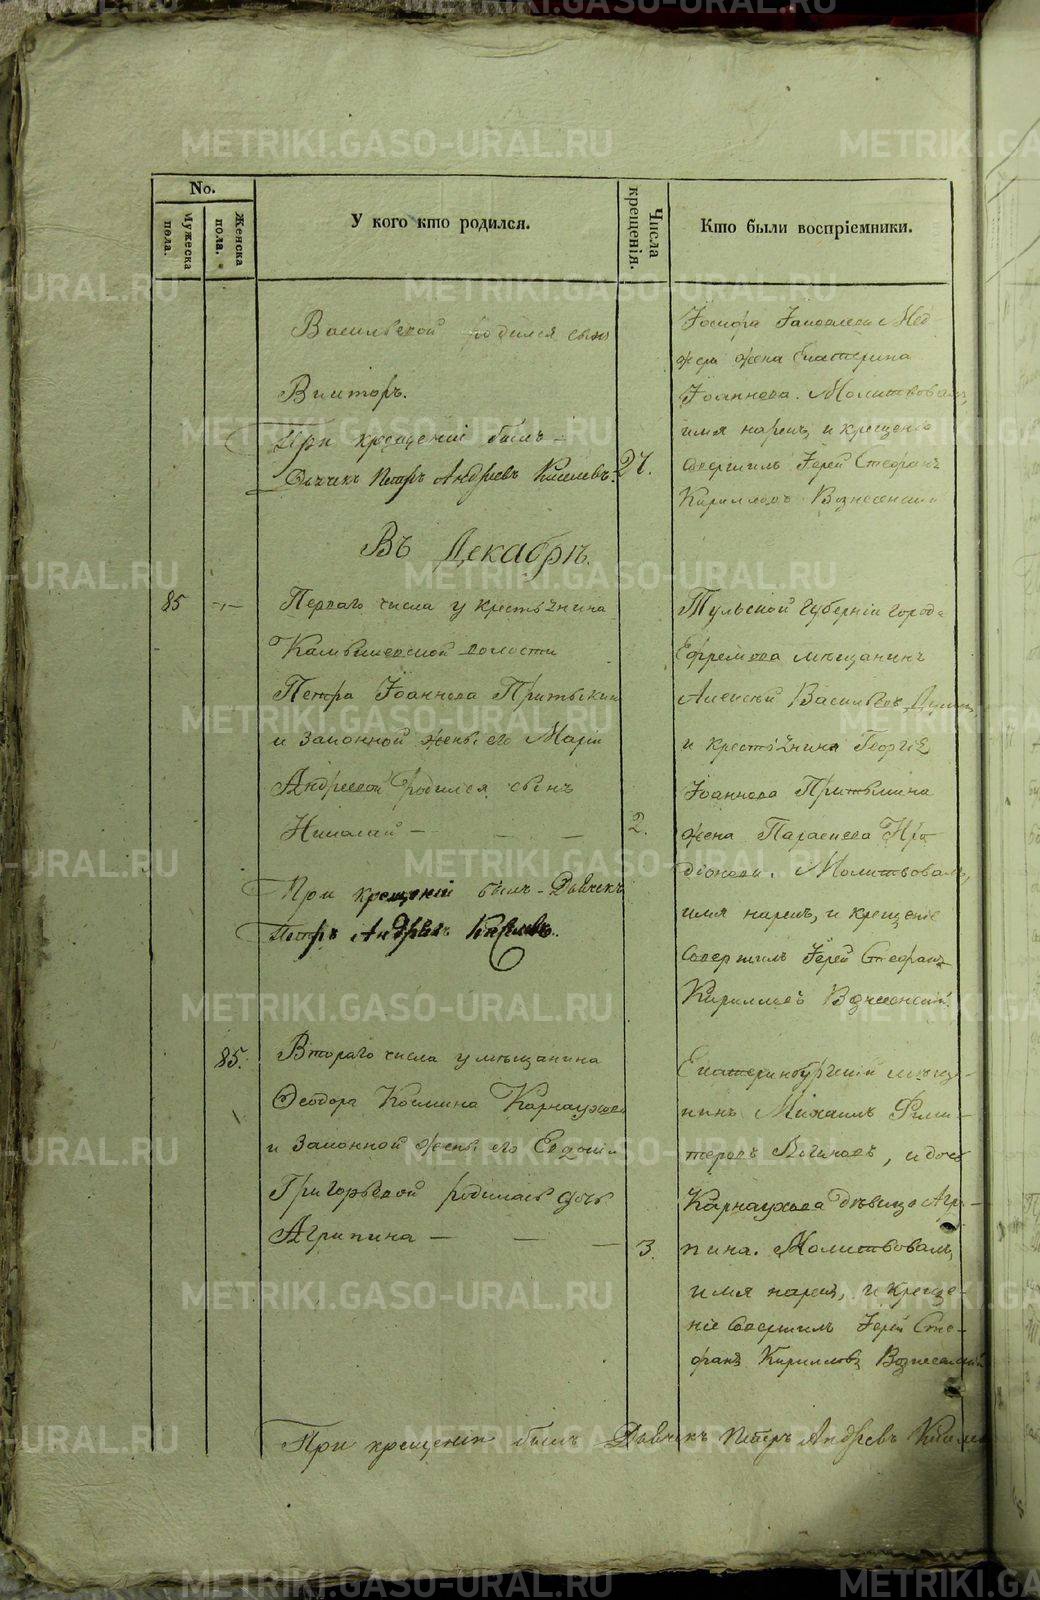 No.
Мужеска пола.
Женска пола.
У кого кто родился.
Числа крещенія.
Кто были воспріемники.
Васильевой родился сынъ
Викторъ.
При крещеніи былъ –
Дьячекъ Петръ Андреевъ Киселевъ.
27.
жена Екатерина
Іоаннова. Молитвовалъ,
имя нарекъ, и крещеніе
совершилъ Іерей Стефанъ
Кирилловъ Вознесенскій
Въ Декабрѣ.
85
Перваго числа у крестьянина
Камышевской волости
Петра Іоаннова
и законной жены его Маріи
Андреевой родился сынъ
Николай – – –
2.
При крещеніи былъ – Дьячекъ
Петръ Андреевъ Киселевъ.
Тульской губерніи города
Ефремова мѣщанинъ
Алексѣй Васильевъ
и крестьянина Георгія
Іоаннова
жена Параскева Иро-
діонова. Молитвовалъ,
имя нарекъ, и крещеніе
совершилъ Іерей Стефанъ
Кирилловъ Вознесенскій
85.
Втораго числа у мѣщанина
Ѳеодора Космина Карнаухова
и законной жены его Евдокіи
Григорьевой родилась дочь
Агрипина – – –
3.
Екатеринбургскій мѣща-
нинъ Михаилъ
и дочь
Карнаухова дѣвица Агри-
пина. Молитвовалъ,
имя нарекъ, и креще-
ніе совершилъ Іерей Сте-
фанъ Кирилловъ Вознесенскій
При крещеніи былъ Дьячекъ Петръ Андреевъ
METRIKI.GASO-URAL.RU